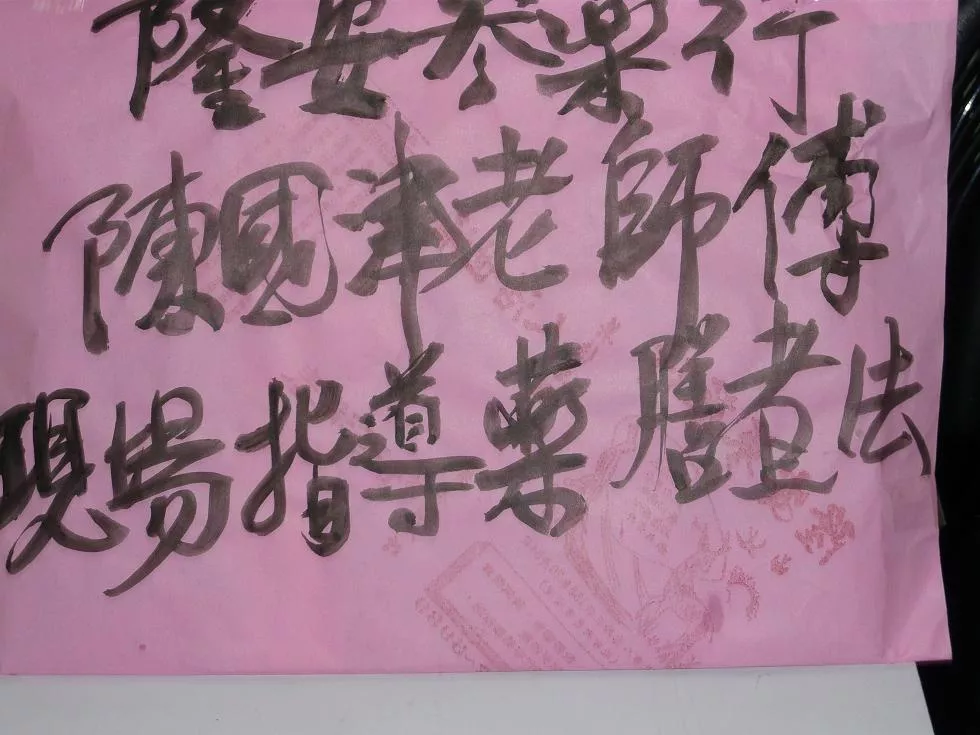 隆安參藥行
陳國津老師傅
現場指導藥膳煮法